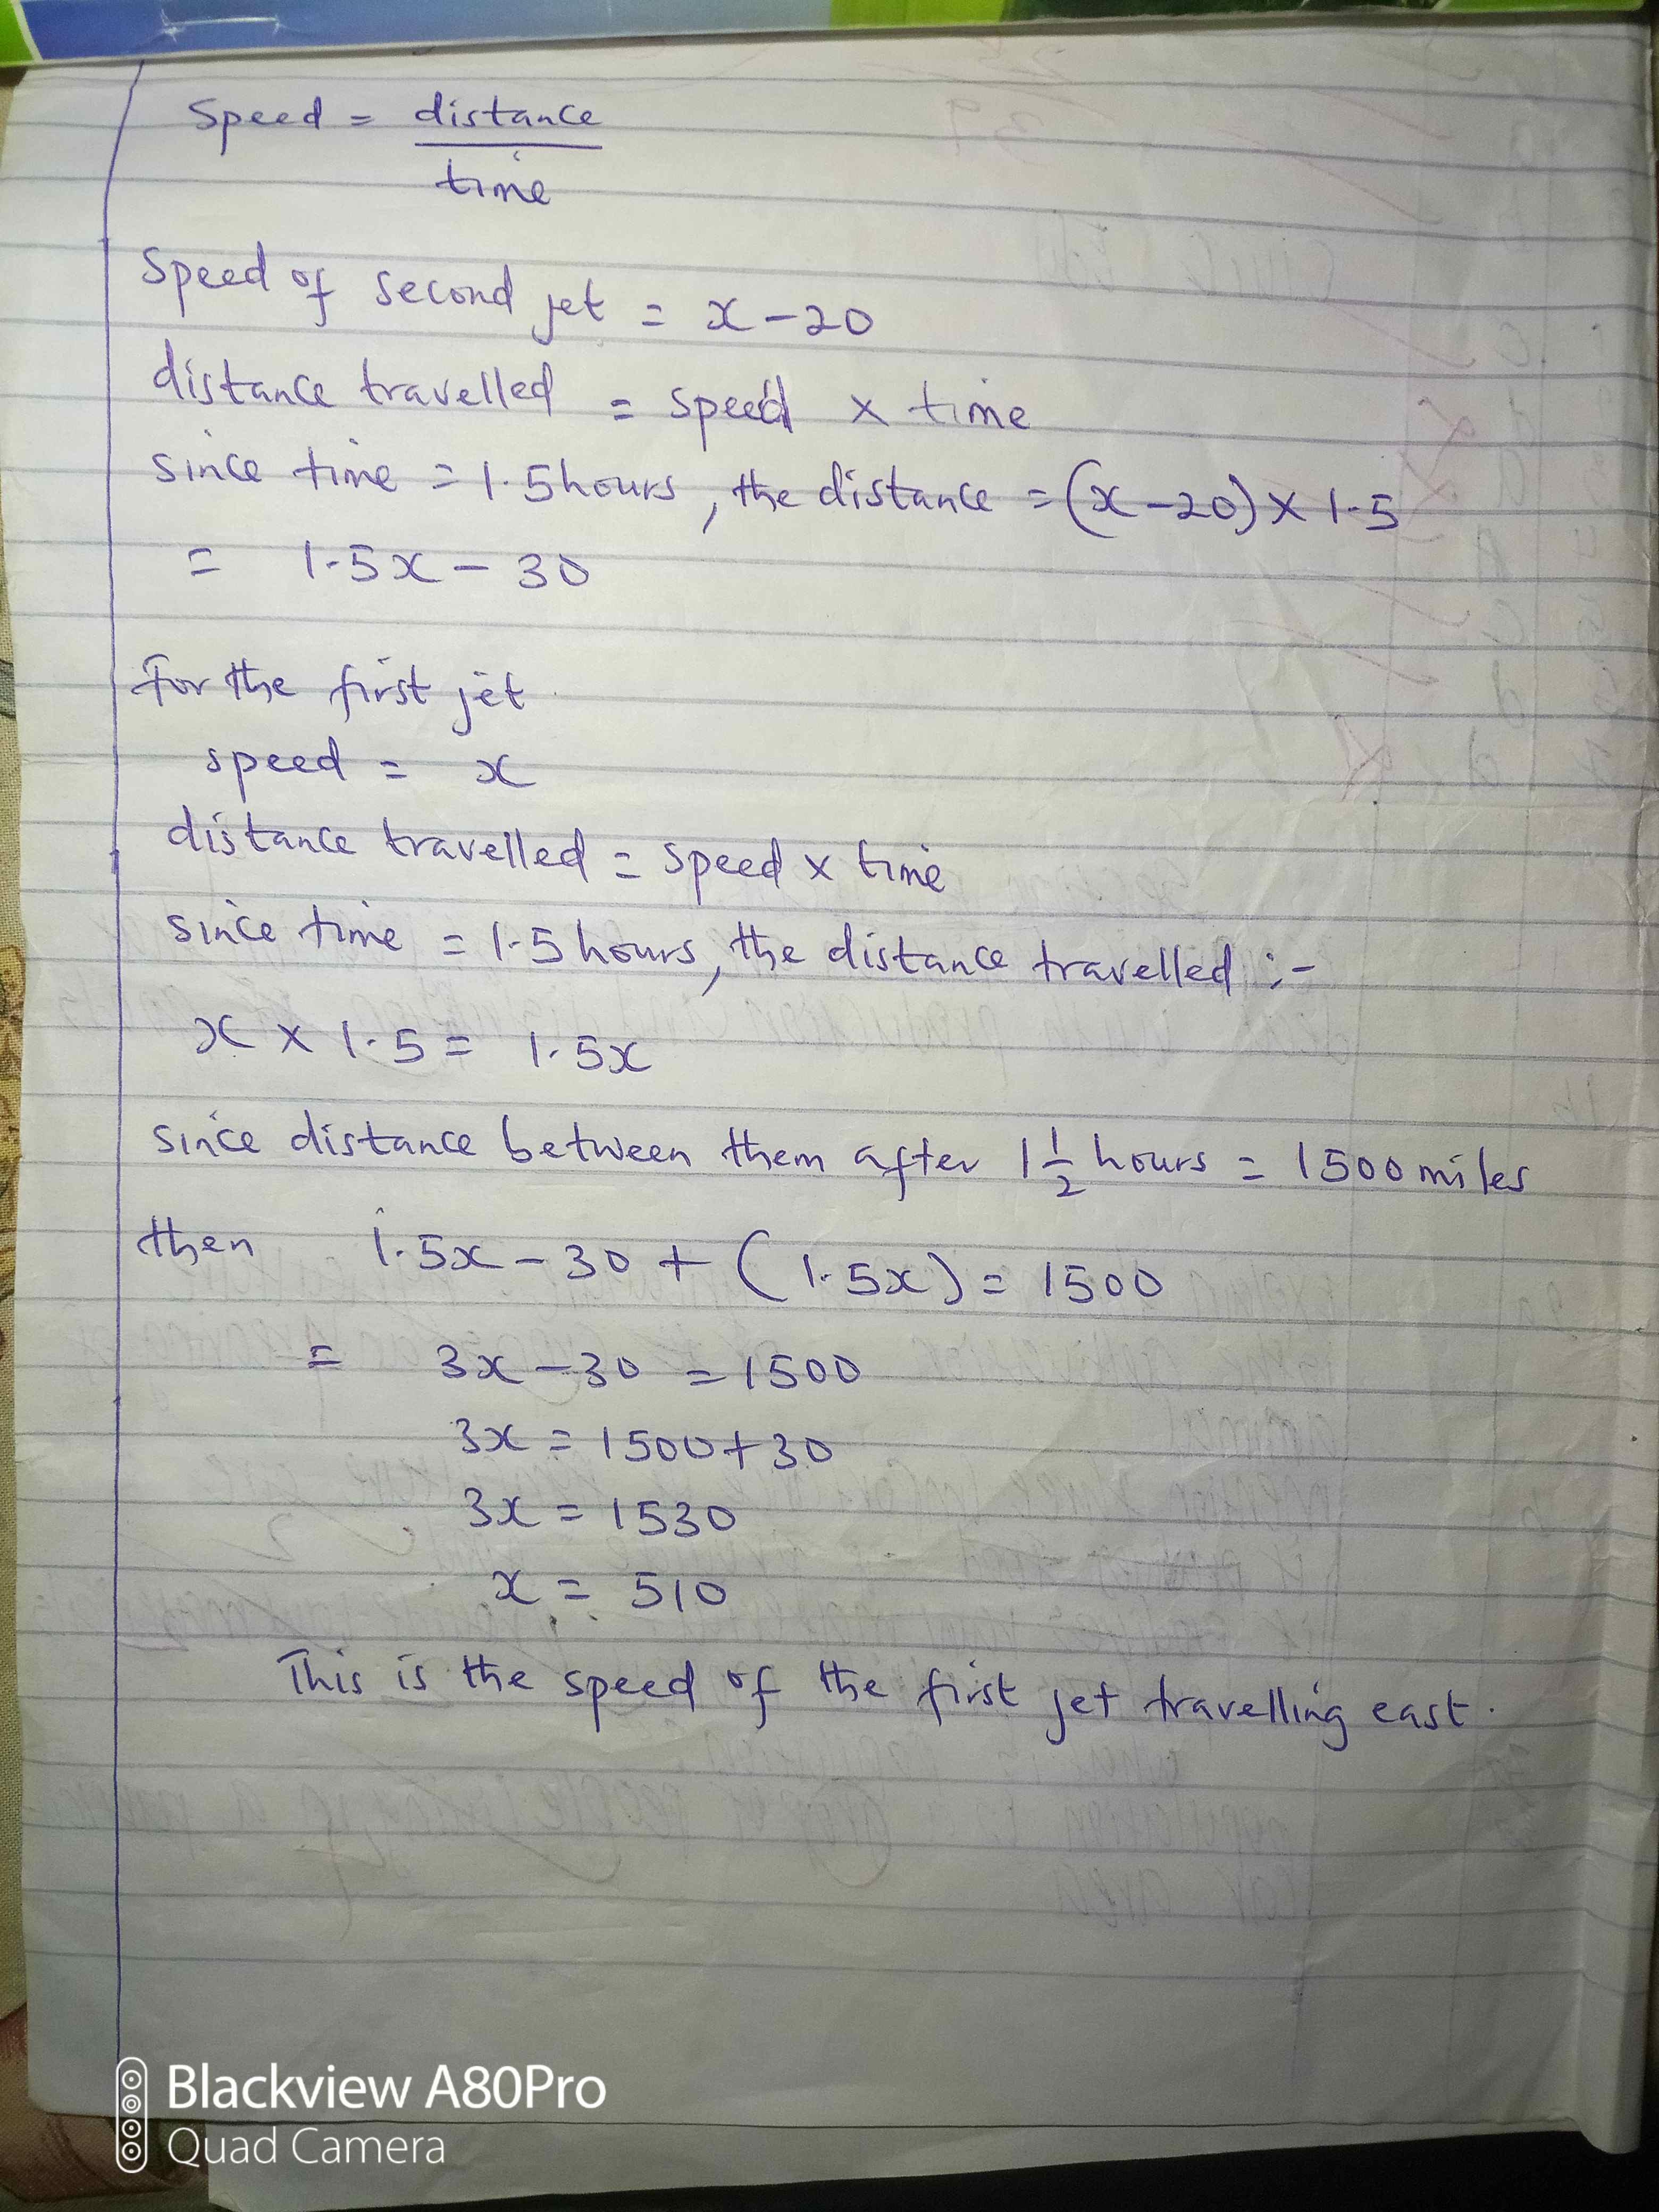 Speed = distance
time
Speed of second jet = x - 20
distance travelled = speed x time
since time = 1.5 hours, the distance = (x - 20) x 1.5
= 1.5x - 30
For the first jet
speed = x
distance travelled = speed x time
since time = 1.5 hours, the distance travelled :-
x x 1.5 = 1.5x
since distance between them after 1 1/2 hours = 1500 miles
then 1.5x - 30 + (1.5x) = 1500
= 3x - 30 = 1500
3x = 1500 + 30
3x = 1530
x = 510
This is the speed of the first jet travelling east.
Blackview A80Pro
Quad Camera